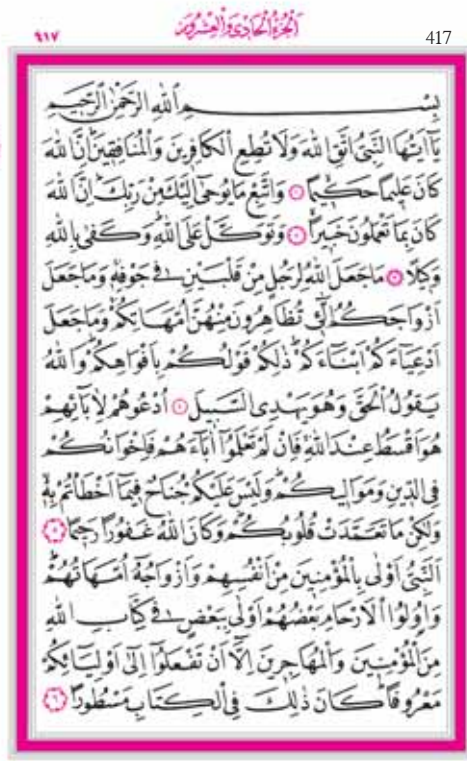 اَلْجُزْءُ الْحَادِى وَالْعِشْرُونَ
٤١٧
417
بِسْمِ اللّٰهِ الرَّحْمٰنِ الرَّحِيمِ
يَٓا اَيُّهَا النَّبِىُّ اتَّقِ اللّٰهَ وَلَا تُطِعِ الْكَافِرِينَ وَالْمُنَافِقِينَ اِنَّ اللّٰهَ
كَانَ عَلِيمًا حَكِيمًا ١ وَاتَّبِعْ مَا يُوحٰٓى اِلَيْكَ مِنْ رَبِّكَ اِنَّ اللّٰهَ
كَانَ بِمَا تَعْمَلُونَ خَبِيرًا ٢ وَتَوَكَّلْ عَلَى اللّٰهِ وَكَفٰى بِاللّٰهِ
وَكِيلًا ٣ مَا جَعَلَ اللّٰهُ لِرَجُلٍ مِنْ قَلْبَيْنِ فِى جَوْفِهِ وَمَا جَعَلَ
اَزْوَاجَكُمُ الّٰٓئِى تُظَاهِرُونَ مِنْهُنَّ اُمَّهَاتِكُمْ وَمَا جَعَلَ
اَدْعِيَٓاءَكُمْ اَبْنَٓاءَكُمْ ذٰلِكُمْ قَوْلُكُمْ بِاَفْوَاهِكُمْ وَاللّٰهُ
يَقُولُ الْحَقَّ وَهُوَ يَهْدِى السَّبِيلَ ٤ اُدْعُوهُمْ لِاٰبَٓائِهِمْ
هُوَ اَقْسَطُ عِنْدَ اللّٰهِ فَاِنْ لَمْ تَعْلَمُٓوا اٰبَٓاءَهُمْ فَاِخْوَانُكُمْ
فِى الدِّينِ وَمَوَالِيكُمْ وَلَيْسَ عَلَيْكُمْ جُنَاحٌ فِيمَٓا اَخْطَاْتُمْ بِهِ
وَلٰكِنْ مَا تَعَمَّدَتْ قُلُوبُكُمْ وَكَانَ اللّٰهُ غَفُورًا رَحِيمًا ٥
اَلنَّبِىُّ اَوْلٰى بِالْمُؤْمِنِينَ مِنْ اَنْفُسِهِمْ وَاَزْوَاجُهُٓ اُمَّهَاتُهُمْ
وَاُولُوا الْاَرْحَامِ بَعْضُهُمْ اَوْلٰى بِبَعْضٍ فِى كِتَابِ اللّٰهِ
مِنَ الْمُؤْمِنِينَ وَالْمُهَاجِرِينَ اِلَّٓا اَنْ تَفْعَلُٓوا اِلٰٓى اَوْلِيَٓائِكُمْ
مَعْرُوفًا كَانَ ذٰلِكَ فِى الْكِتَابِ مَسْطُورًا ٦